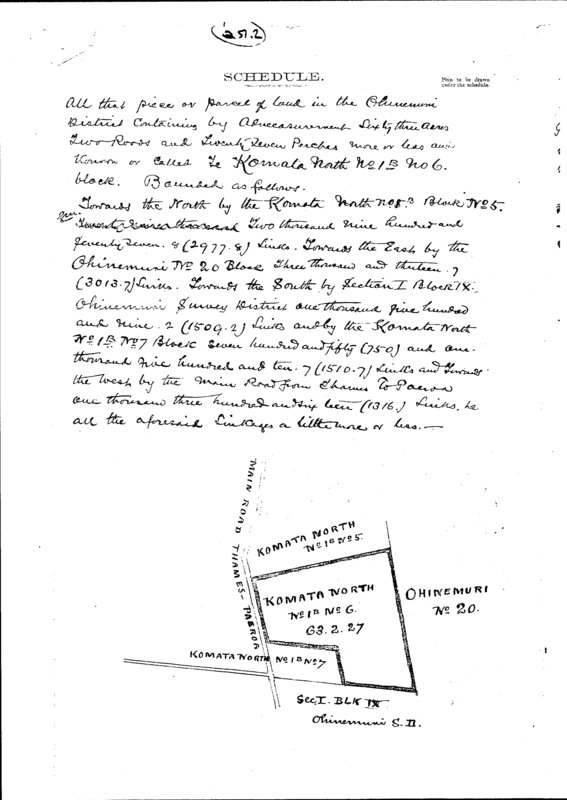 251.2
SCHEDULE.
Plan to be drawn
under the schedule.
All that piece or parcel of land in the Ohinemuri
District Containing by Admeasurement Sixty three Acres
Two Roods and Twenty Seven Perches more or less and
Known or called Te Komata North No 1B No 6.
block. Bounded as follows.
Towards the North by the Komata North No 1B Block No 5.
Two thousand nine hundred and
Seventy Seven. 8 (2977.8) Links. Towards the East by the
Ohinemuri No 20 Block Three thousand and thirteen. 7
(3013.7) Links. Towards the South by Section I Block IX.
Ohinemuri Survey District one thousand five hundred
and nine. 2 (1509.2) Links and by the Komata North
No 1B No 7 Block Seven hundred and fifty (750) and one
thousand five hundred and ten. 7 (1510.7) Links and Towards
the West by the Main Road from Thames To Paeroa
one thousand three hundred and sixteen (1316.) Links, be
all the aforesaid Linkages a little more or less.—
MAIN ROAD THAMES-PAEROA
KOMATA NORTH
No 1B No 5.
KOMATA NORTH
No 1B No 6.
63.2.27
OHINEMURI
No 20.
KOMATA NORTH No 1B No 7
Sec I. BLK IX
Ohinemuri S.D.